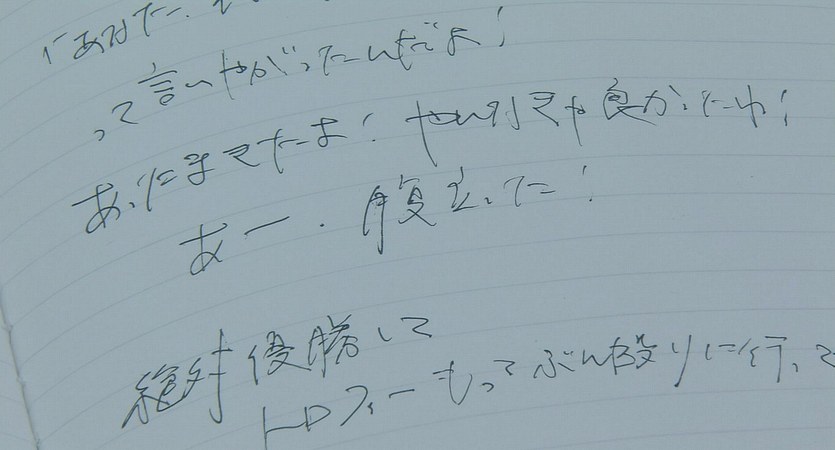 って言いやがったんだよ!
あったまきたよ! 良かったわ!
あー.腹立った!
絶対優勝して
トロフィーもってぶん殴りに行って